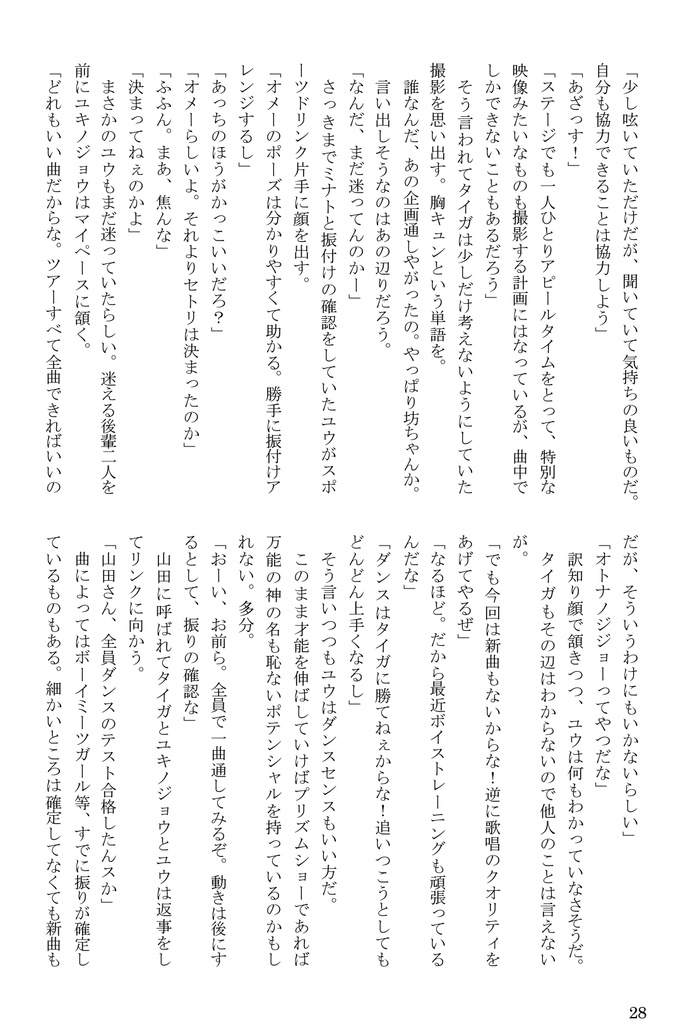 「少し呟いていただけだが、聞いていて気持ちの良いものだ。
自分も協力できることは協力しよう」
「あざっす！」
「ステージでも一人ひとりアピールタイムをとって、特別な
映像みたいなものも撮影する計画にはなっているが、曲中で
しかできないこともあるだろう」
そう言われてタイガは少しだけ考えないようにしていた
撮影を思い出す。胸キュンという単語を。
誰なんだ、あの企画通しやがったの。やっぱり坊ちゃんか。
言い出しそうなのはあの辺りだろう。
「なんだ、まだ迷ってんのかー」
さっきまでミナトと振付けの確認をしていたユウがスポ
ーツドリンク片手に顔を出す。
「オメーのポーズは分かりやすくて助かる。勝手に振付けア
レンジするし」
「あっちのほうがかっこいいだろ？」
「オメーらしいよ。それよりセトリは決まったのか」
「ふふん。まあ、焦んな」
「決まってねぇのかよ」
まさかのユウもまだ迷っていたらしい。迷える後輩二人を
前にユキノジョウはマイペースに頷く。
「どれもいい曲だからな。ツアーすべて全曲できればいいの
だが、そういうわけにもいかないらしい」
「オトナノジジョーってやつだな」
訳知り顔で頷きつつ、ユウは何もわかっていなさそうだ。
タイガもその辺はわからないので他人のことは言えない
が。
「でも今回は新曲もないからな！逆に歌唱のクオリティを
あげてやるぜ」
「なるほど。だから最近ボイストレーニングも頑張っている
んだな」
「ダンスはタイガに勝てねぇからな！追いつこうとしても
どんどん上手くなるし」
そう言いつつもユウはダンスセンスもいい方だ。
このまま才能を伸ばしていけばプリズムショーであれば
万能の神の名も恥ないポテンシャルを持っているのかもし
れない。多分。
「おーい、お前ら。全員で一曲通してみるぞ。動きは後にす
るとして、振りの確認な」
山田に呼ばれてタイガとユキノジョウとユウは返事をし
てリンクに向かう。
「山田さん、全員ダンスのテスト合格したんスか」
曲によってはボーイミーツガール等、すでに振りが確定し
ているものもある。細かいところは確定してなくても新曲も
28